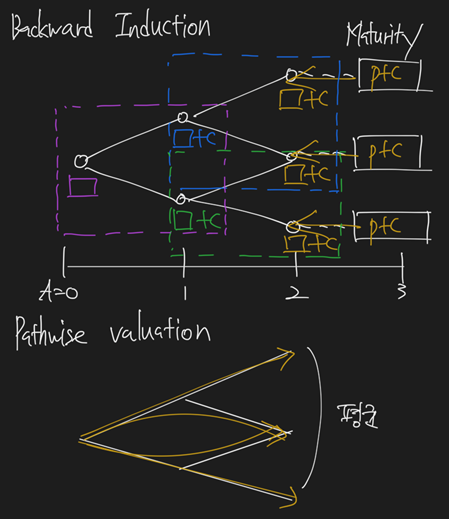 Backward Induction
Maturity
p+c
□+c
□+c
p+c
□
□+c
□+c
p+c
□+c
A=0 1 2 3
Pathwise valuation
평균